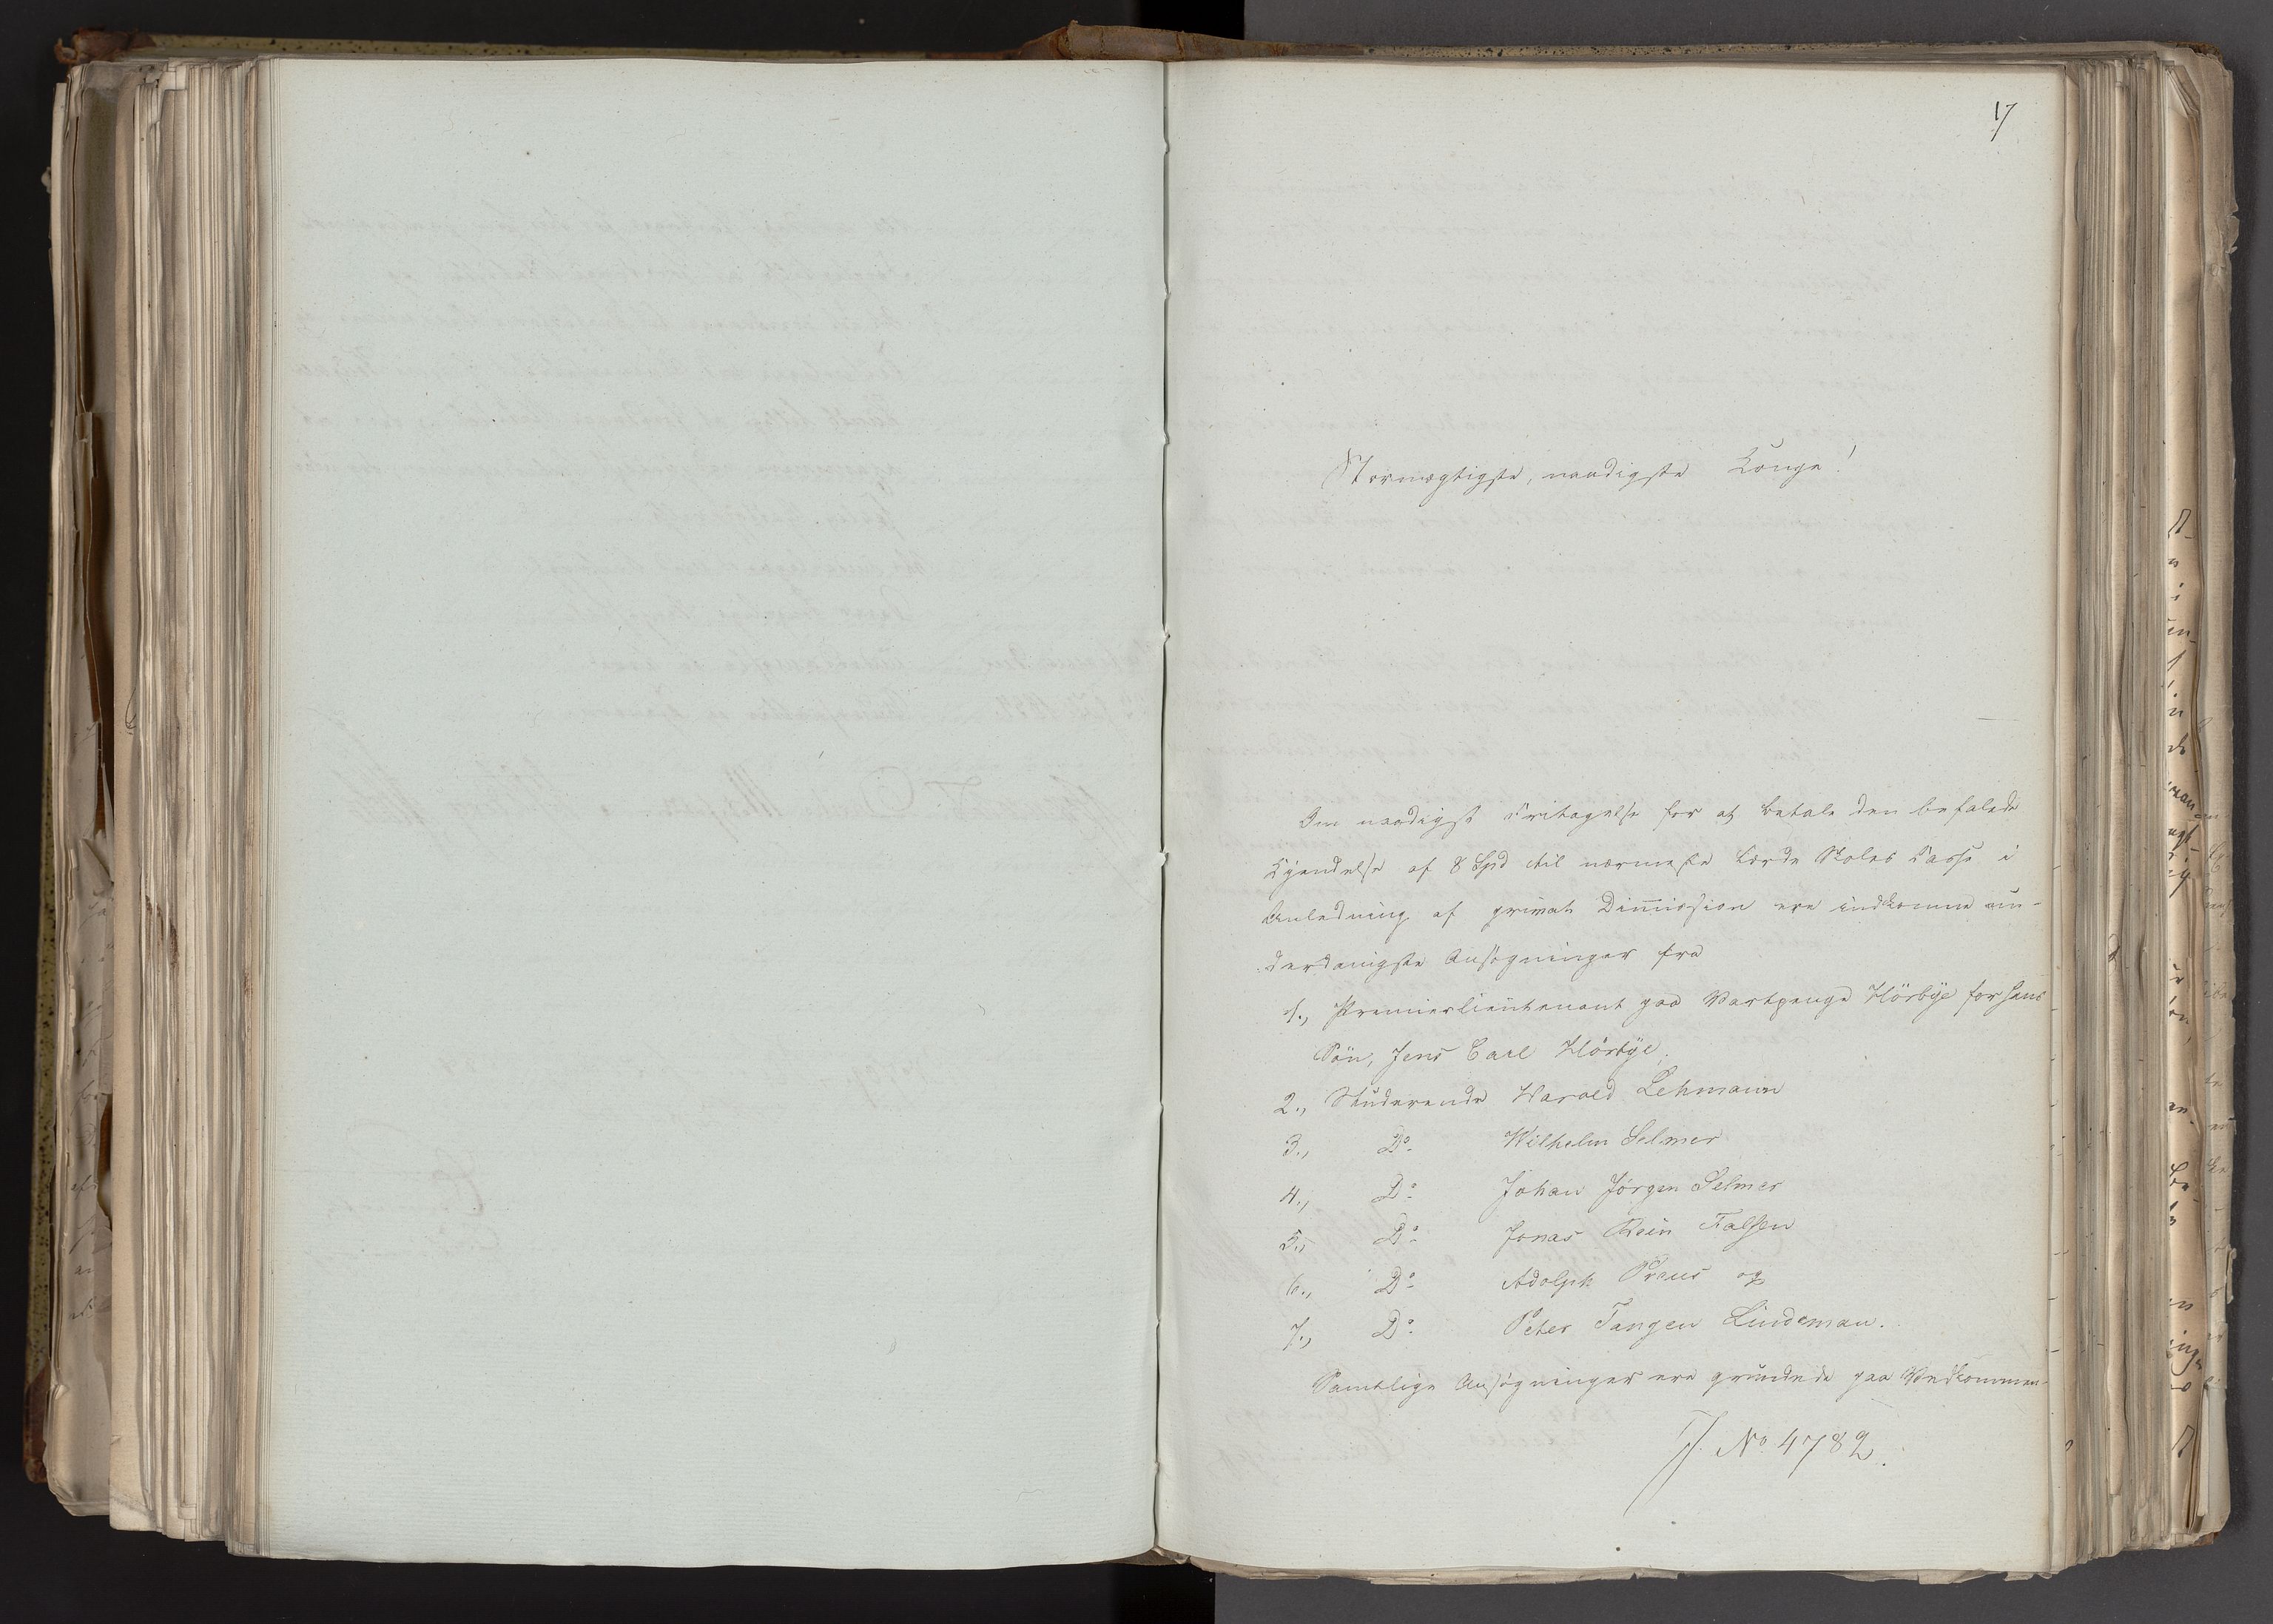 17
Stormægtigste, naadigste Konge!
Om naadigst Fritagelse for at betale den befalede
Kjendelse af 8 Spd til nærmeste lærde Skoles Casse i
Anledning af privat Dimission ere indkomne un-
derdanigste Ansøgninger fra
1., Premierlieutenant paa Vartpenge Hörbÿe for hans
Sön, Jens Carl Hörbÿe.
2., Studerende Harald Lehmann
3., Do Wilhelm Selmer
4., Do Johan Jörgen Selmer
5., Do Jonas Rein Falsen
6., Do Adolph Preus og
7., Do Peter Tangen Lindeman.
Samtlige Ansøgninger ere grundede paa Vedkommen-
J. No 4782.